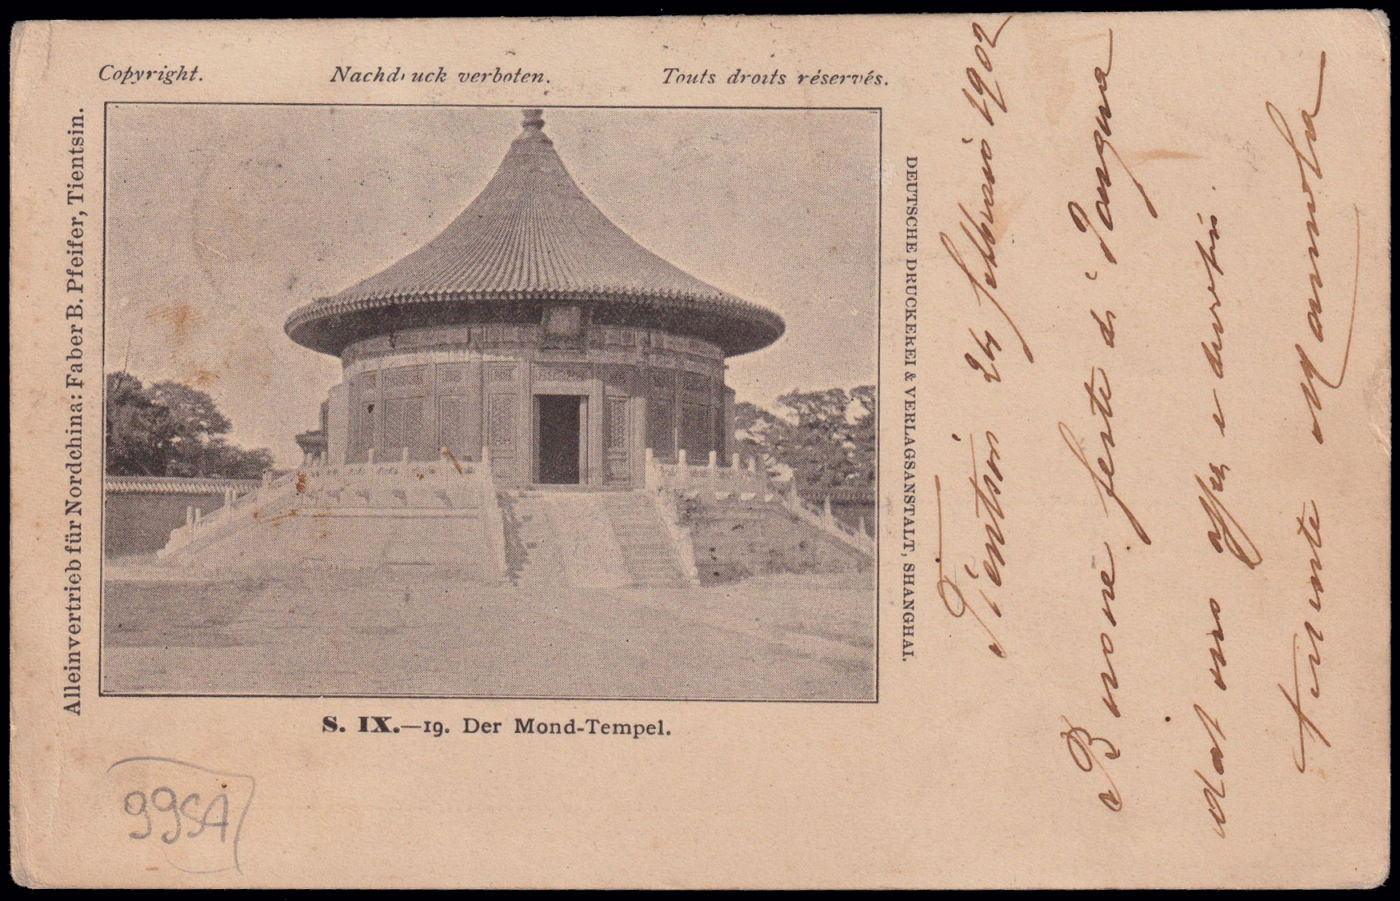 Copyright.
Nachdruck verboten.
Touts droits réservés.
Alleinvertrieb für Nordchina: Faber B. Pfeifer, Tientsin.
DEUTSCHE DRUCKEREI & VERLAGSANSTALT, SHANGHAI.
S. IX.—19. Der Mond-Tempel.
Tientsin 24 febbraio 1902
Buone feste di Pasqua
dal suo aff e
tenente